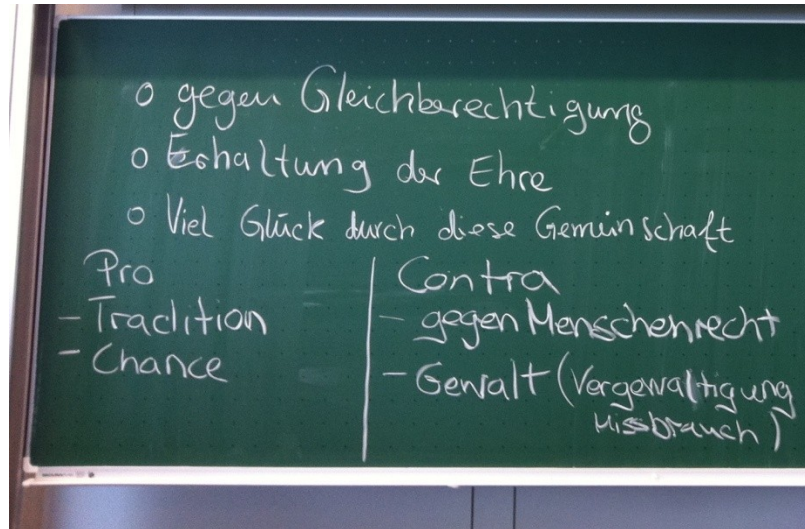 o gegen Gleichberechtigung
o Erhaltung der Ehre
o Viel Glück durch diese Gemeinschaft
Pro
- Tradition
- Chance
Contra
- gegen Menschenrecht
- Gewalt (Vergewaltigung
Missbrauch)